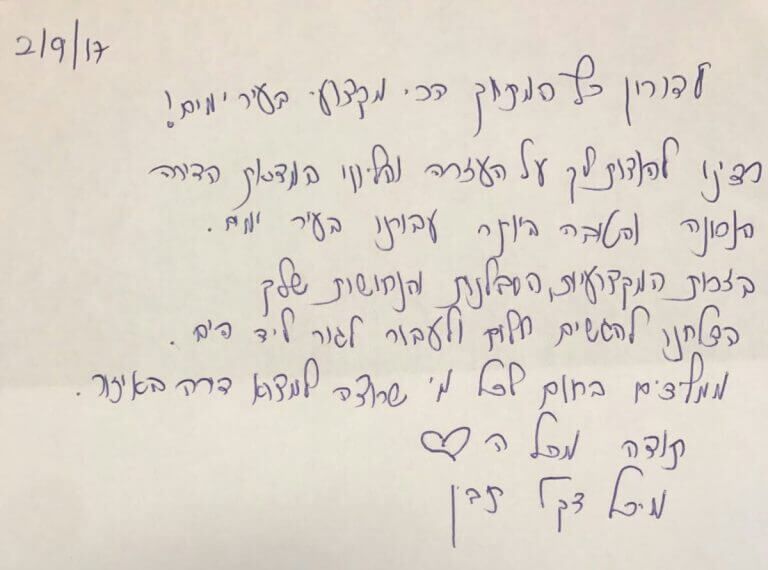 2/9/17
לדורון כל המתווך הכי מקצועי בעיר ימים!
רצינו להודות לך על העזרה והליווי במציאת הדירה
הנכונה והטובה ביותר עבורנו בעיר ימים.
בזכות המקצועיות, הסבלנות והנחישות שלך
הצלחנו להגשים חלום ולעבור לגור ליד הים.
ממליצים בחום לכל מי שרוצה למצוא דירה באיזור.
תודה מכל ה♡
מיכל